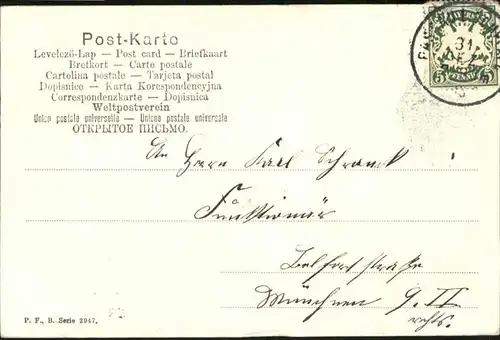 Post-Karto
Levelező-Lap — Post card — Briefkaart
Brefkort — Carte postale
Cartolina postale — Tarjeta postal
Dopisnice — Karta Korespondencyjna
Correspondenzkarte — Dopisnica
Weltpostverein
Union postale universelle — Unione postale universale
ОТКРЫТОЕ ПИСЬМО.
31
DEZ
5 PFENNIG 5
An Herrn Karl Schrank
Funktionär
Belfortstraße
München 9. II
rechts.
P. F., B. Serie 2947.